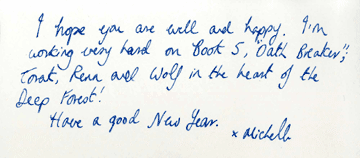 I hope you are well and happy. I'm
working very hard on Book 5, "Oath Breaker";
Torak, Renn and Wolf in the heart of the
Deep Forest!
Have a good New Year.
x Michelle